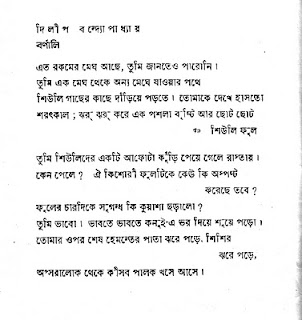 দিলীপ বন্দ্যোপাধ্যায়
বর্ণালি
এত রকমের মেঘ আছে, তুমি জানতেও পারোনি।
তুমি এক মেঘ থেকে অন্য মেঘে যাওয়ার পথে
শিউলি গাছের কাছে দাঁড়িয়ে পড়তে। তোমাকে দেখে হাসতো
শরৎকাল; ঝর্ ঝর্ করে এক পশলা বৃষ্টি আর ছোট ছোট
শিউলি ফুল
তুমি শিউলিদের একটি আফোটা কুঁড়ি পেয়ে গেলে রাস্তায়।
কেন পেলে? ঐ কিশোরী ফুলটিকে কেউ কি অস্পষ্ট
ঝরেছে তবে?
ফুলের চারদিকে সুগন্ধি কি কুয়াশা ছড়ালো?
তুমি ভাবো। ভাবতে ভাবতে কনুই-এ ভর দিয়ে শুয়ে পড়ো।
তোমার ওপর শেষ হেমন্তের পাতা ঝরে পড়ে। শিশির
ঝরে পড়ে,
অপ্সরালোক থেকে কীসব পালক খসে আসে।